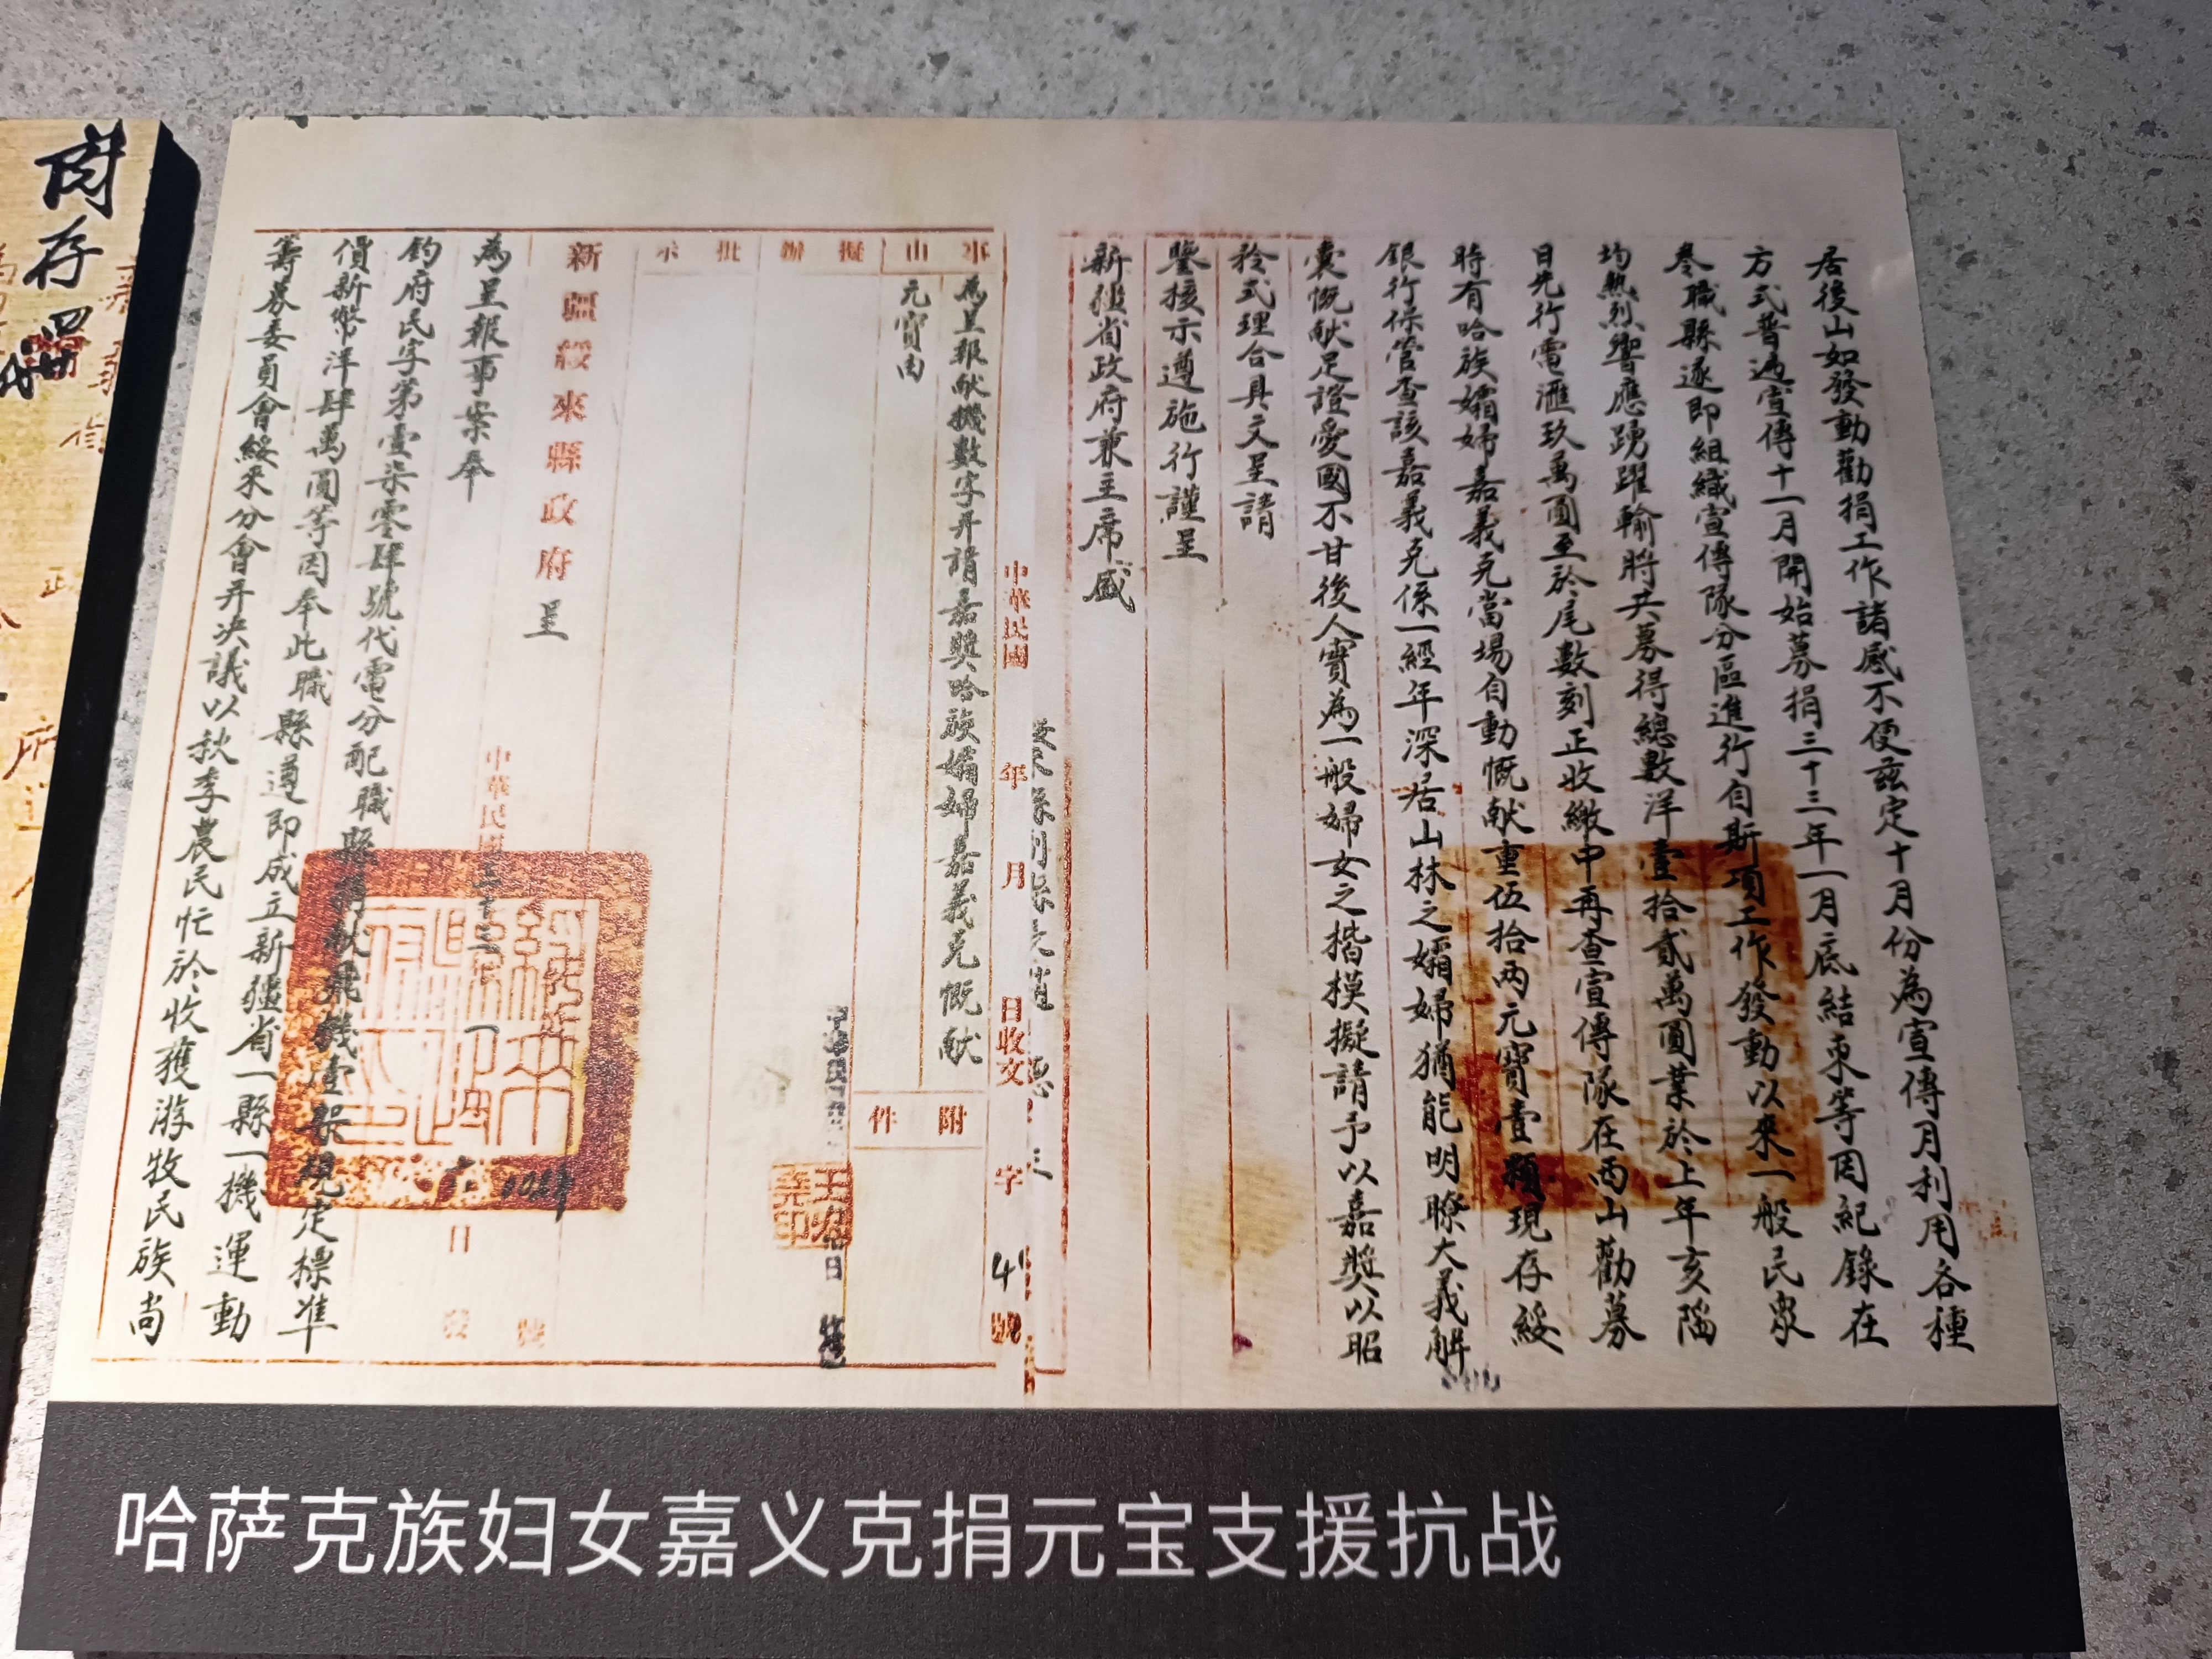 事由
為呈報献機數字并請嘉獎哈族孀婦嘉義克慨献
元寳由
附件
擬辦
批示
新疆綏來縣政府 呈
為呈報事案奉
鈞府民字第壹柒零肆號代電分配職縣捐献飛機壹架現定標準
價新幣洋肆萬圓等因奉此職縣遵即成立新疆省一縣一機運動
籌募委員會綏來分會并决議以秋季農民忙於收獲游牧民族尚
居後山如發動勸捐工作諸感不便茲定十月份為宣傳月利用各種
方式普遍宣傳十一月開始募捐三十三年一月底結束等因紀錄在
卷職縣遂即組織宣傳隊分區進行自斯項工作發動以來一般民衆
均熱烈響應踴躍輸將共募得總數洋壹拾貳萬圓業於上年亥陷
日先行電滙玖萬圓至於尾數刻正收繳中再查宣傳隊在西山勸募
時有哈族孀婦嘉義克當場自動慨献重伍拾两元寳壹顆現存綏
銀行保管查該嘉義克係一經年深居山林之孀婦猶能明瞭大義解
囊慨献足證愛國不甘後人實為一般婦女之楷模擬請予以嘉獎以昭
矜式理合具文呈請
鑒核示遵施行謹呈
新疆省政府兼主席盛
中華民國 年 月 日收文 字 號
中華民國三十三年一月 日 發 號
哈萨克族妇女嘉义克捐元宝支援抗战